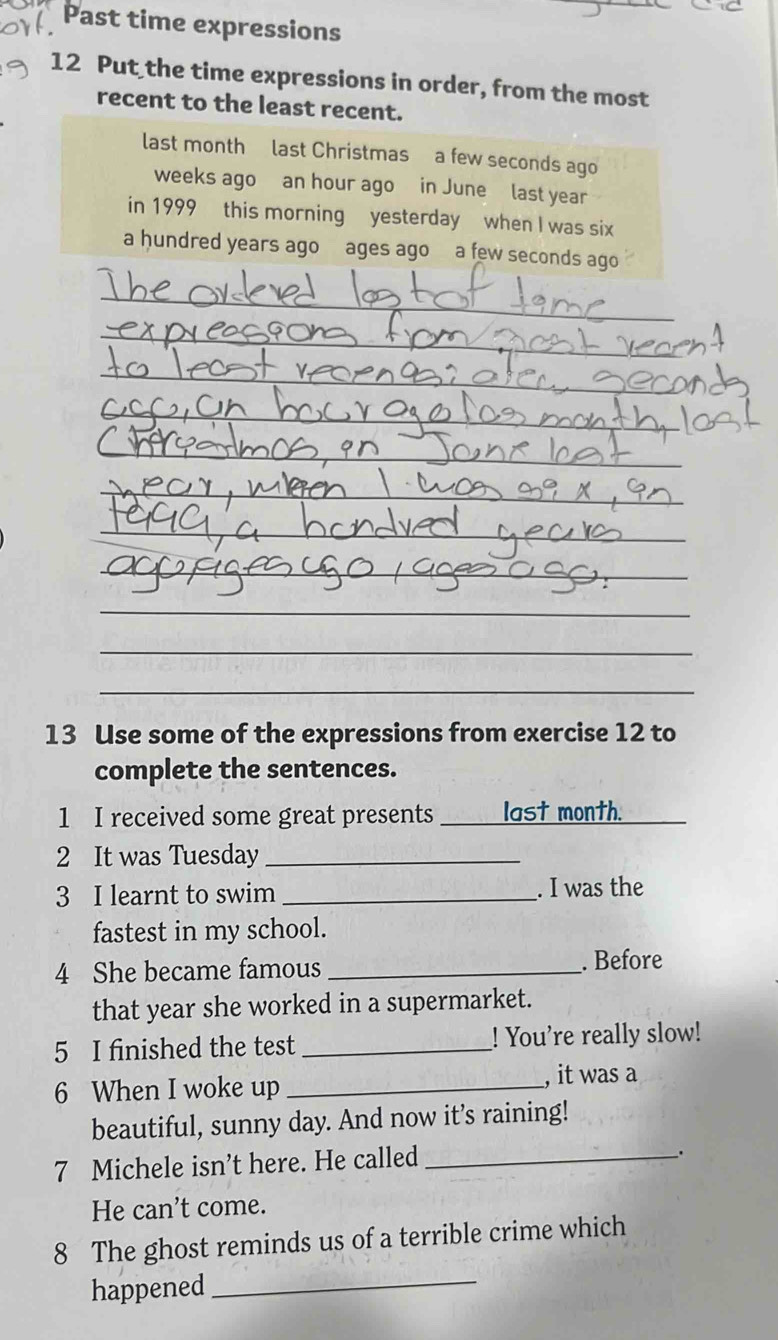 Past time expressions
12 Put the time expressions in order, from the most
recent to the least recent.
last month last Christmas a few seconds ago
weeks ago an hour ago in June last year
in 1999 this morning yesterday when I was six
a hundred years ago ages ago a few seconds ago
The ordered
expressions from most recent
to least seconds
ago, an hour ago month, last
in June last
year, when I was six, in
a hundred years
ago, ages ago, ages ago.
13 Use some of the expressions from exercise 12 to
complete the sentences.
1 I received some great presents last month.
2 It was Tuesday
3 I learnt to swim . I was the
fastest in my school.
4 She became famous . Before
that year she worked in a supermarket.
5 I finished the test ! You're really slow!
6 When I woke up , it was a
beautiful, sunny day. And now it's raining!
7 Michele isn't here. He called .
He can't come.
8 The ghost reminds us of a terrible crime which
happened